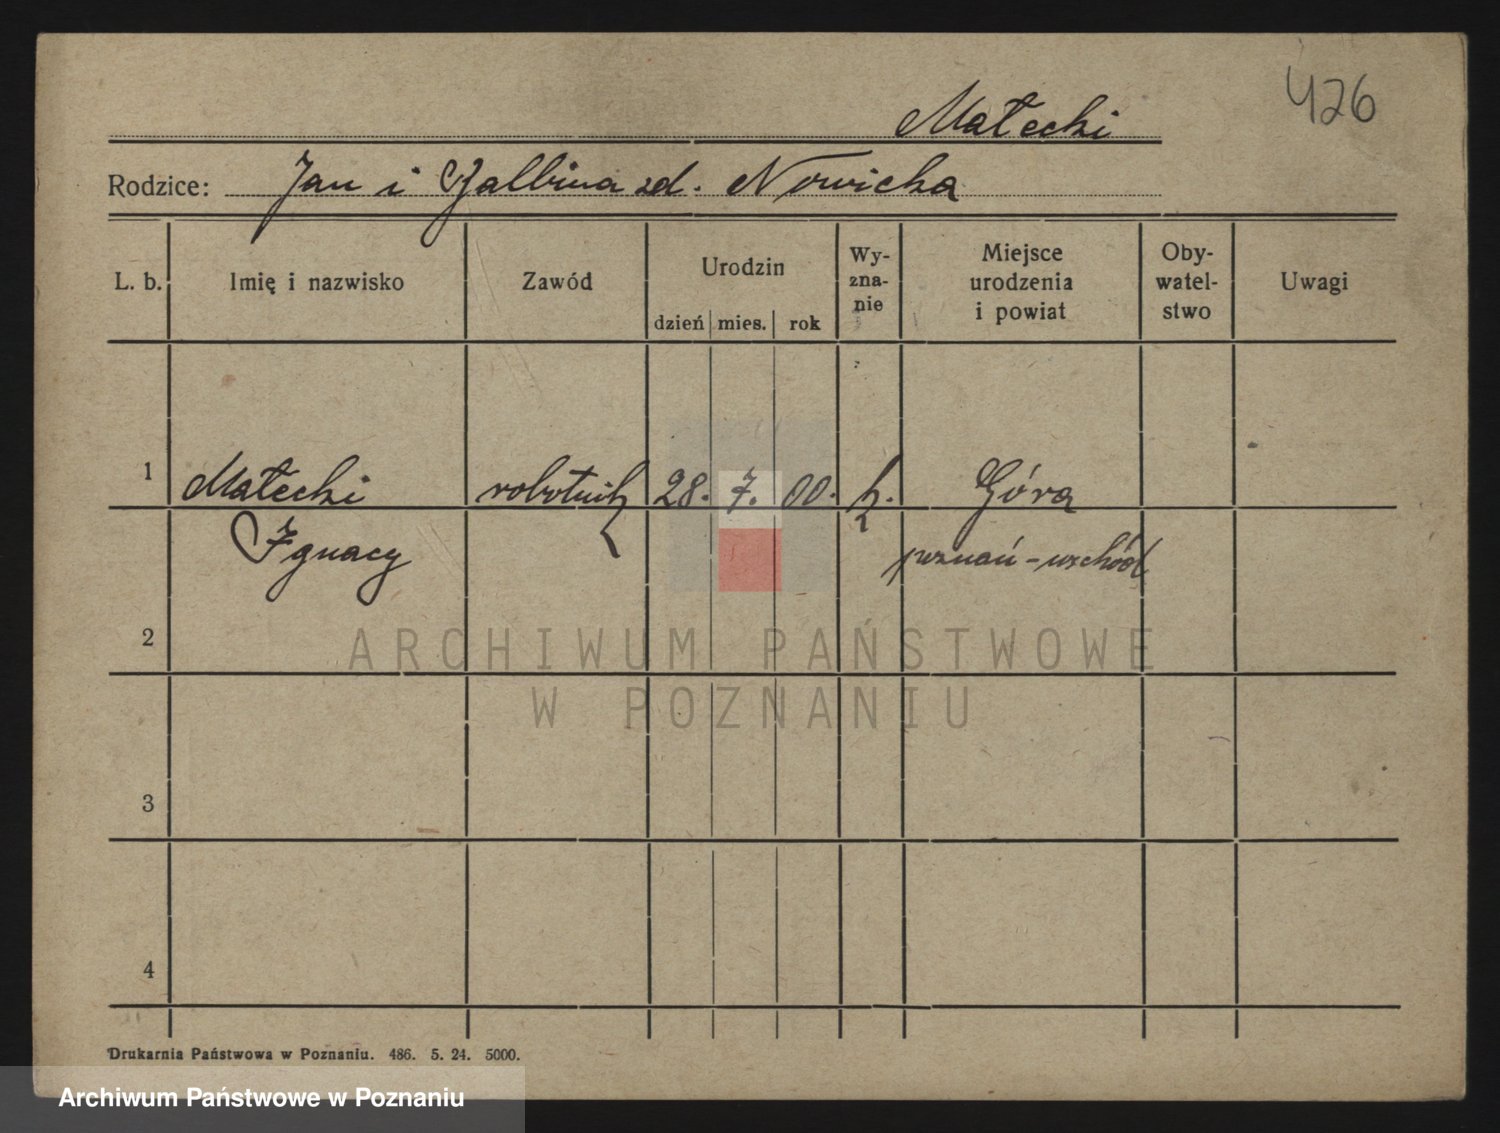 426
Małecki
Rodzice: Jan i Galbina zd. Nowicka
L. b. Imię i nazwisko Zawód Urodzin dzień mies. rok Wy-zna-nie Miejsce urodzenia i powiat Oby-watel-stwo Uwagi
1 Małecki robotnik 28. 7. 00. k. Góra
Ignacy poznań-wschód
2
ARCHIWUM PAŃSTWOWE
W POZNANIU
3
4
Drukarnia Państwowa w Poznaniu. 486. 5. 24. 5000.
Archiwum Państwowe w Poznaniu